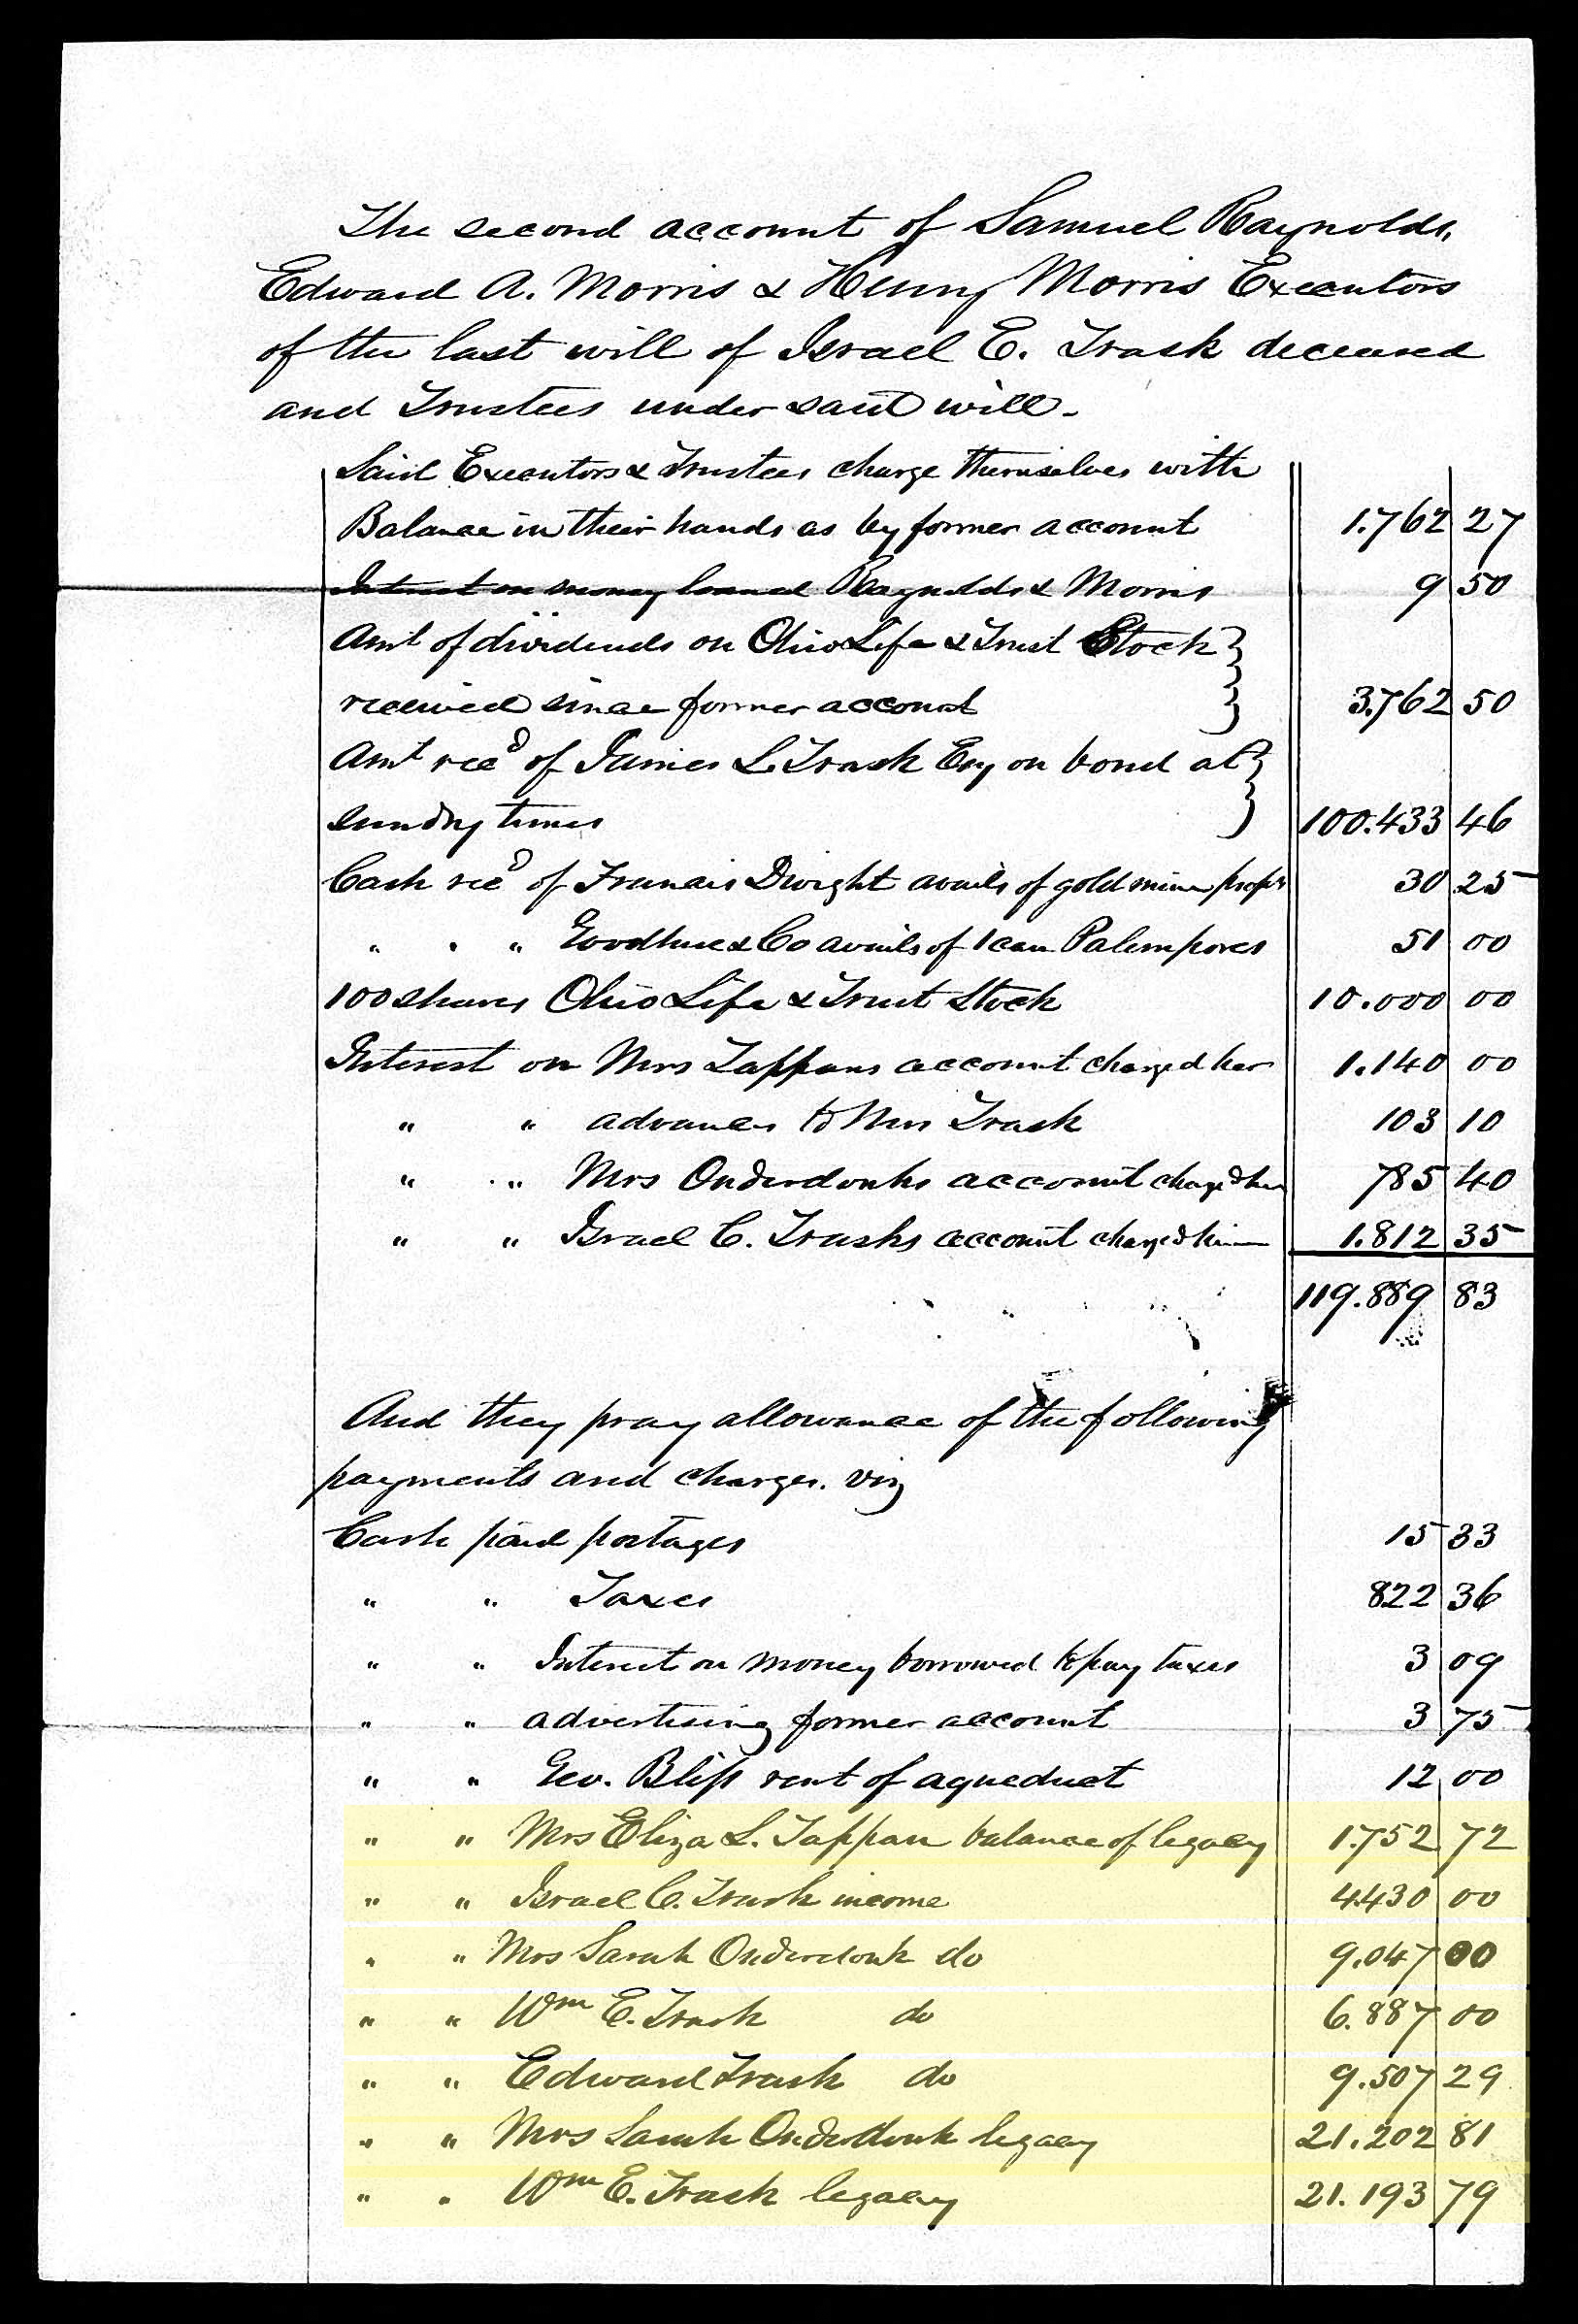 The second account of Samuel Raynolds,
Edward A. Morris & Henry Morris Executors
of the last will of Israel E. Trask deceased
and Trustees under said will.
Said Executors & Trustees charge themselves with
Balance in their hands as by former account 1.762 27
Interest on money loaned Raynolds & Morris 9 50
Amt of dividends on Ohio Life & Trust Stock
received since former account 3.762 50
Amt recd of James L. Trask Esq on bond at
sundry times 100.433 46
Cash recd of Francis Dwight avails of gold mine prop'y 30 25
" " " Goodhue & Co avails of 1 case Palempores 51 00
100 shares Ohio Life & Trust Stock 10.000 00
Interest on Mrs Tappans account charged her 1.140 00
" " advances to Mrs Trask 103 10
" " Mrs Onderdonks account charged her 785 40
" " Israel C. Trasks account charged him 1.812 35
119.889 83
And they pray allowance of the following
payments and charges. viz
Cash paid postages 15 33
" " Taxes 822 36
" " Interest on money borrowed to pay taxes 3 09
" " advertising former account 3 75
" " Geo. Bliss rent of aqueduct 12 00
" " Mrs Eliza L. Tappan balance of legacy 1.752 72
" " Israel C. Trask income 4.430 00
" " Mrs Sarah Onderdonk do 9.047 00
" " Wm E. Trask do 6.887 00
" " Edward Trask do 9.507 29
" " Mrs Sarah Onderdonk legacy 21.202 81
" " Wm E. Trask legacy 21.193 79